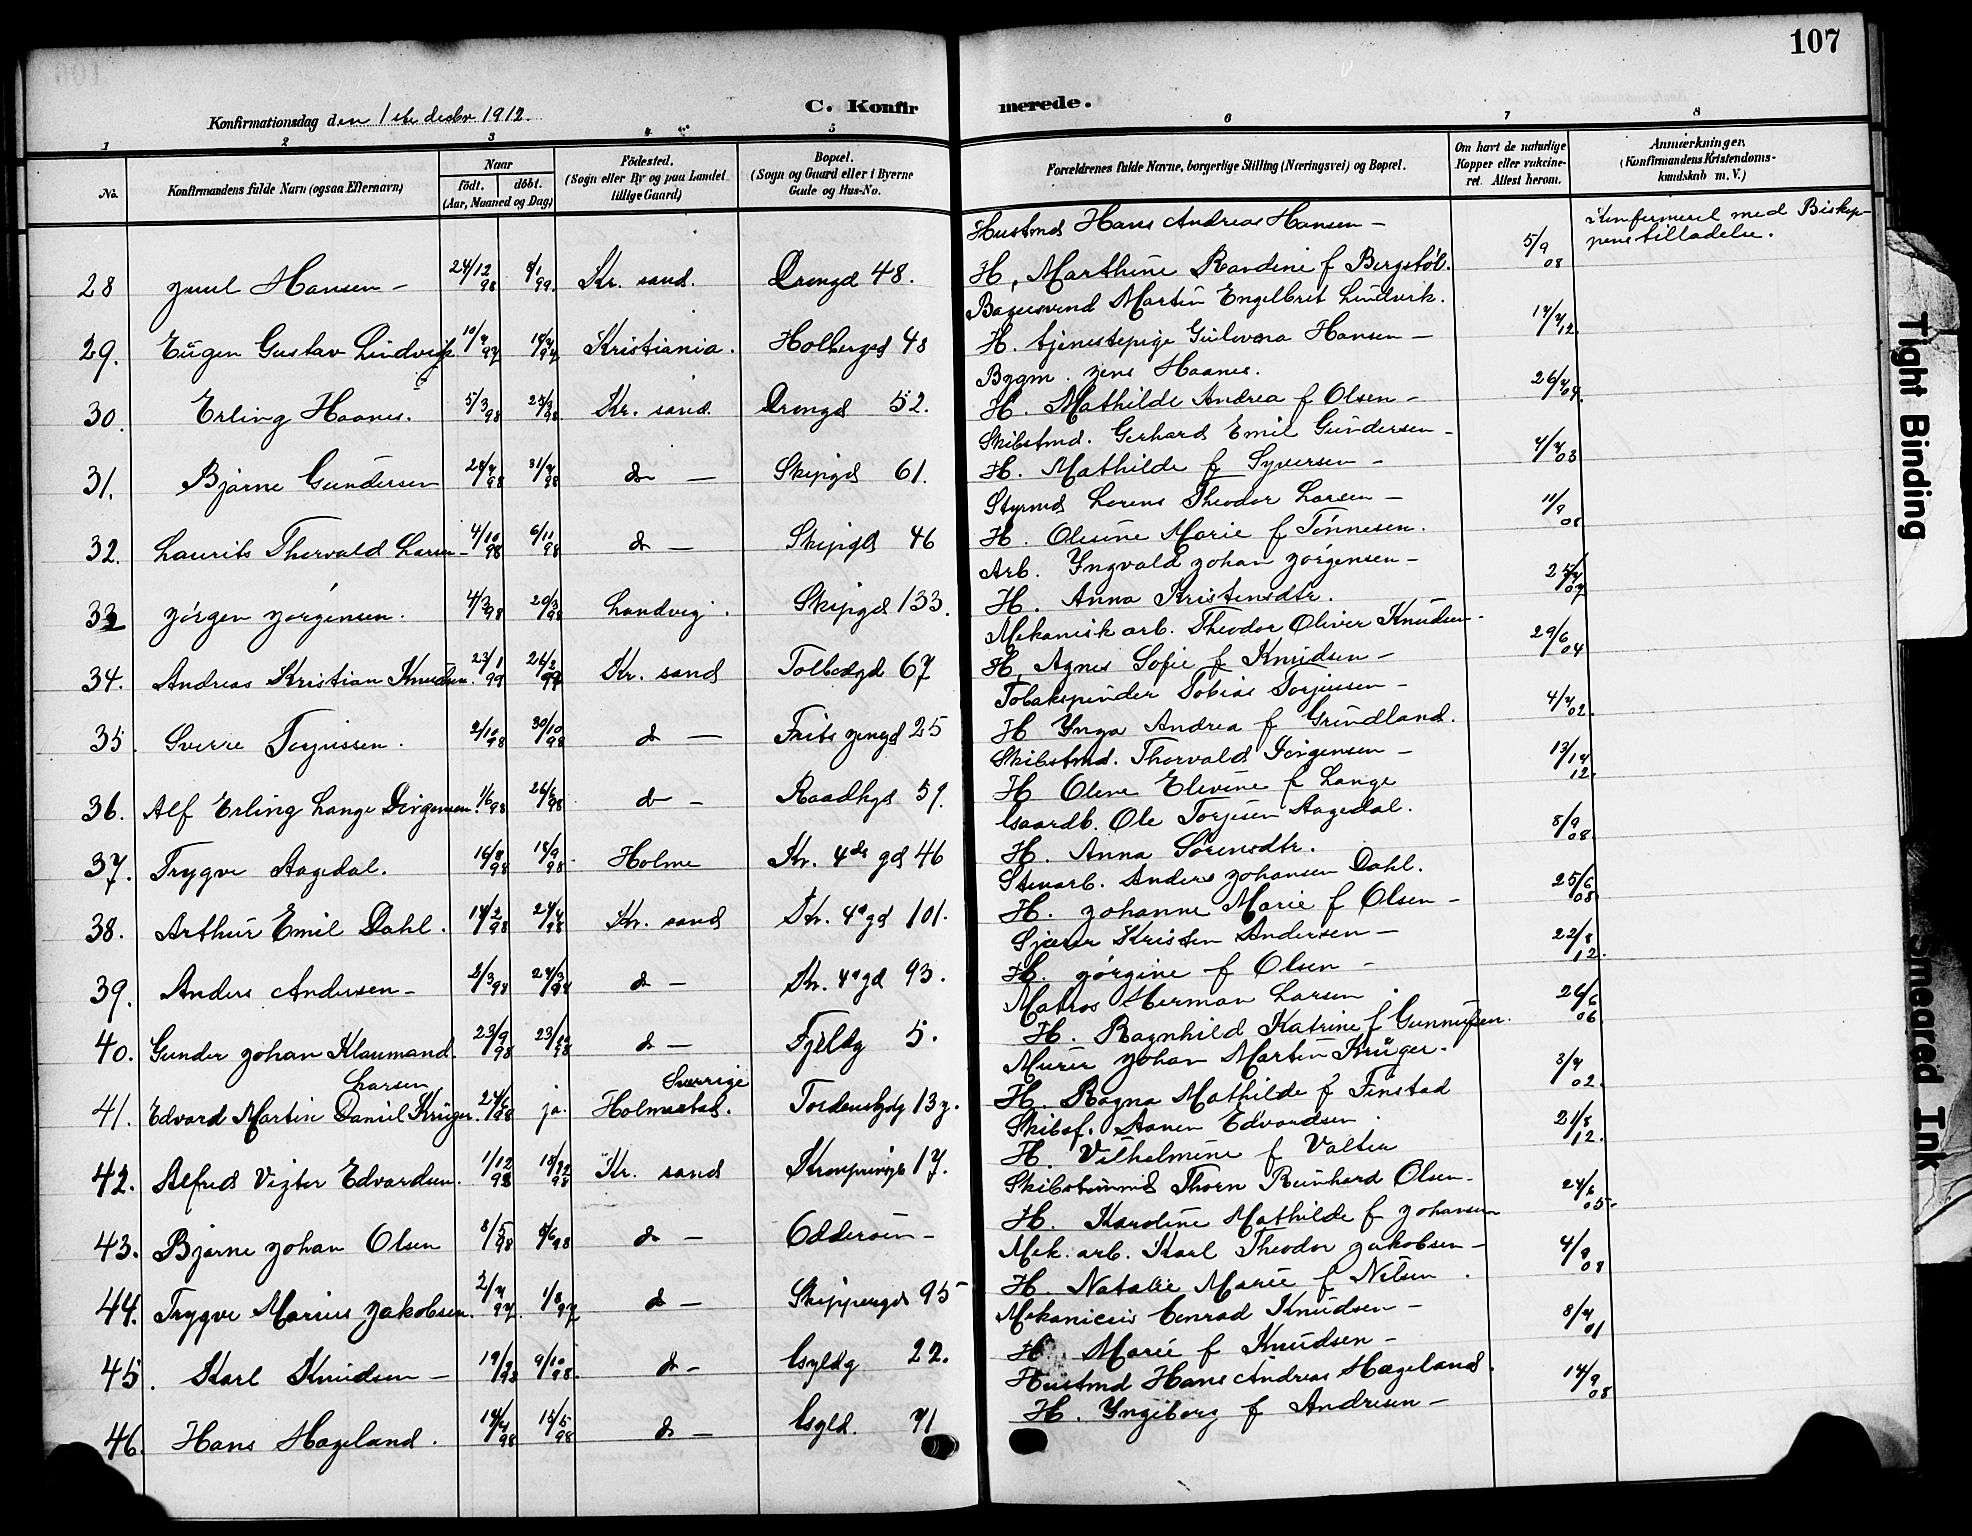 107
Konfirmationsdag den 1ste desbr 1912.
C. Konfirmerede.
1 2 3 4 5 6 7 8
No.
Konfirmandens fulde Navn (ogsaa Efternavn)
Naar
født. døbt.
(Aar, Maaned og Dag)
Fødested.
(Sogn eller By og paa Landet
tillige Gaard)
Bopæl.
(Sogn og Gaard eller i Byerne
Gade og Hus-No.
Forældrenes fulde Navne, borgerlige Stilling (Næringsvei) og Bopæl.
Om havt de naturlige
Kopper eller vakcine-
ret. Attest herom.
Anmærkninger.
(Konfirmandens Kristendoms-
kundskab m. V.)
Hustmd Hans Andreas Hansen - Konfermeret med Biskop-
pens tilladelse.
28 Juul Hansen - 24/12 98 8/1 99. Kr. sand. Drongd 48. H. Marthine Randine f Bergstøl. 5/9 08
Bagersvend Martin Engelbret Lindvik.
29. Eugen Gustav Lindvik 10/4 97 18/4 97 Kristiania. Holbergsgd 48 H. tjenestepige Gulovna Hansen - 17/4 12.
Bygm. Jens Haanes.
30. Erling Haanes. 5/3 98 25/3 98 Kr. sand. Drongd 52. H. Mathilde Andrea f Olsen - 26/4 04.
Skibstmd. Gerhard Emil Gundersen -
31. Bjarne Gundersen 28/4 98 31/4 98 do - Skipgd 61. H. Mathilde f Syversen - 4/4 03
Styrmd Lorens Theodor Larsen -
32. Laurits Thorvald Larsen - 4/10 98 6/11 98 do - Skipgd 46 H. Olesine Marie f Tönnesen. 11/9 08
Arb. Yngvald Johan Jørgensen -
33 Jørgen Jørgensen. 4/3 98 20/3 98 Landvig. Skipgd 133. H. Anna Kristensdtr. 25/4 07
Mekanisk arb. Theodor Oliver Knudsen -
34. Andreas Kristian Knudsen. 23/1 99 26/2 99 Kr. sand Tolbodgd 67 H. Agnes Sofie f Knudsen - 29/6 04
Tobakspinder Tobias Torjussen -
35 Sverre Torjussen. 2/10 98 30/10 98 do - Frits Jensgd 25 H Ynga Andrea f Grundland. 4/4 02.
Skibstmd. Thorvald Jørgensen -
36. Alf Erling Lange Jørgensen. 1/6 98 26/6 98 do - Raadhgd 59. H Olene Elevine f Lange 13/14 12.
Gaardb. Ole Torjusen Aagedal.
37. Trygve Aagedal. 16/8 98 18/9 98. Holme Kr. 4de gd 46 H. Anna Sørensdtr. 8/9 08.
Stenarb. Anders Johansen Dahl.
38. Arthur Emil Dahl. 14/2 98 24/4 98 Kr. sand Kr. 4de gd 101. H. Johanne Marie f Olsen - 25/6 08.
Sjauer Kristen Andersen -
39. Anders Andersen - 5/3 98 27/3 98 do - Kr. 4de gd 93. H. Jörgine f Olsen - 22/8 12.
Matros Herman Larsen
40. Gunder Johan Klaumand Larsen 23/9 98 23/10 98 do - Fjeldg 5. H. Ragnhild Katrine f Gunnufsen. 26/6 06.
Murer Johan Martin Krüger.
41. Edvard Martin Daniel Krüger. 24/6 98 ja. Holmestad. Sverrige Tordenskjg 13 H. Ragna Mathilde f Finstad 3/4 02.
Skibsf. Aanen Edvardsen.
42. Alfred Vigtor Edvardsen. 1/12 98 18/12 98 Kr. sand Kronprinsgt 17. H. Vilhelmine f Valten 21/8 12.
Skibstømmd Thorn Reinhard Olsen -
43. Bjarne Johan Olsen 8/5 98 5/6 98 do - Odderøen - H. Karoline Mathilde f Johansen 24/6 05.
Mek. arb. Karl Theodor Jakobsen -
44. Trygve Marius Jakobsen. 2/4 97. 1/8 97 do - Skippergd 95 H. Natalie Marie f Nilsen. 4/9 08
Mekanicus Conrad Knudsen -
45. Karl Knudsen - 19/9 98 9/10 98. do - Gyldg 22. H. Marie f Knudsen - 8/4 01
Hustmd Hans Andreas Hageland.
46. Hans Hageland. 14/4 98 15/5 98 do - Gyld. 71 H. Yngeborg f Andresen - 14/9 08
Tight Binding
Smeared Ink